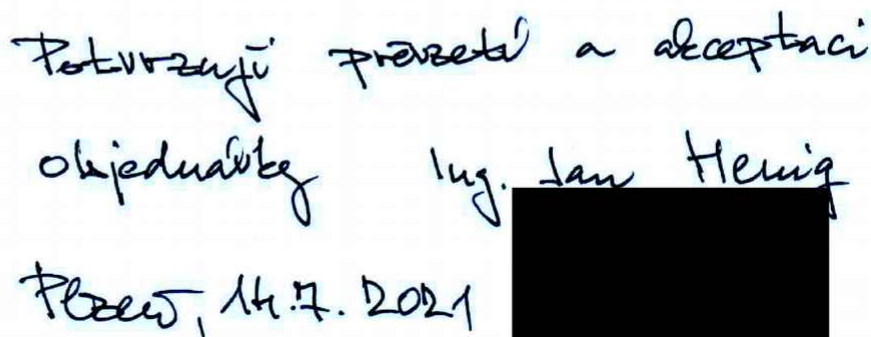 Potvrzuji převzetí a akceptaci
objednávky Ing. Jan Henig
Plzeň, 14.7. 2021